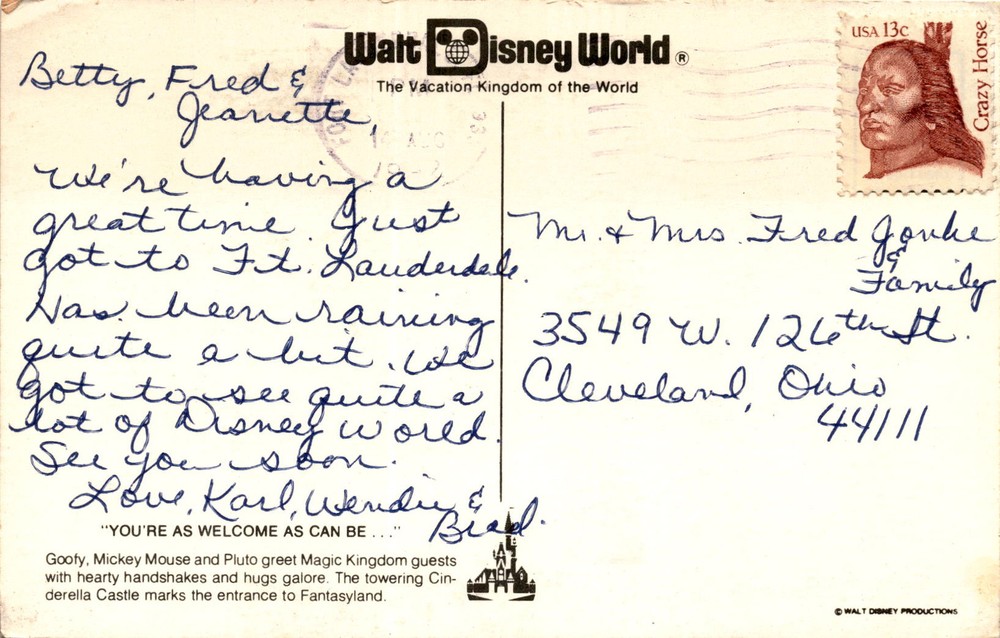 Walt Disney World ®
The Vacation Kingdom of the World
USA 13c
Crazy Horse
Betty, Fred &
Jeanette,
We're having a
great time. Just
got to Ft. Lauderdale.
Has been raining
quite a bit. We
got to see quite a
lot of Disney World.
See you soon.
Love, Karl, Wendie &
Brad.
Mr. & Mrs. Fred
&
Family
3549 W. 126th St.
Cleveland, Ohio
44111
"YOU'RE AS WELCOME AS CAN BE ..."
Goofy, Mickey Mouse and Pluto greet Magic Kingdom guests
with hearty handshakes and hugs galore. The towering Cin-
derella Castle marks the entrance to Fantasyland.
© WALT DISNEY PRODUCTIONS
AUG